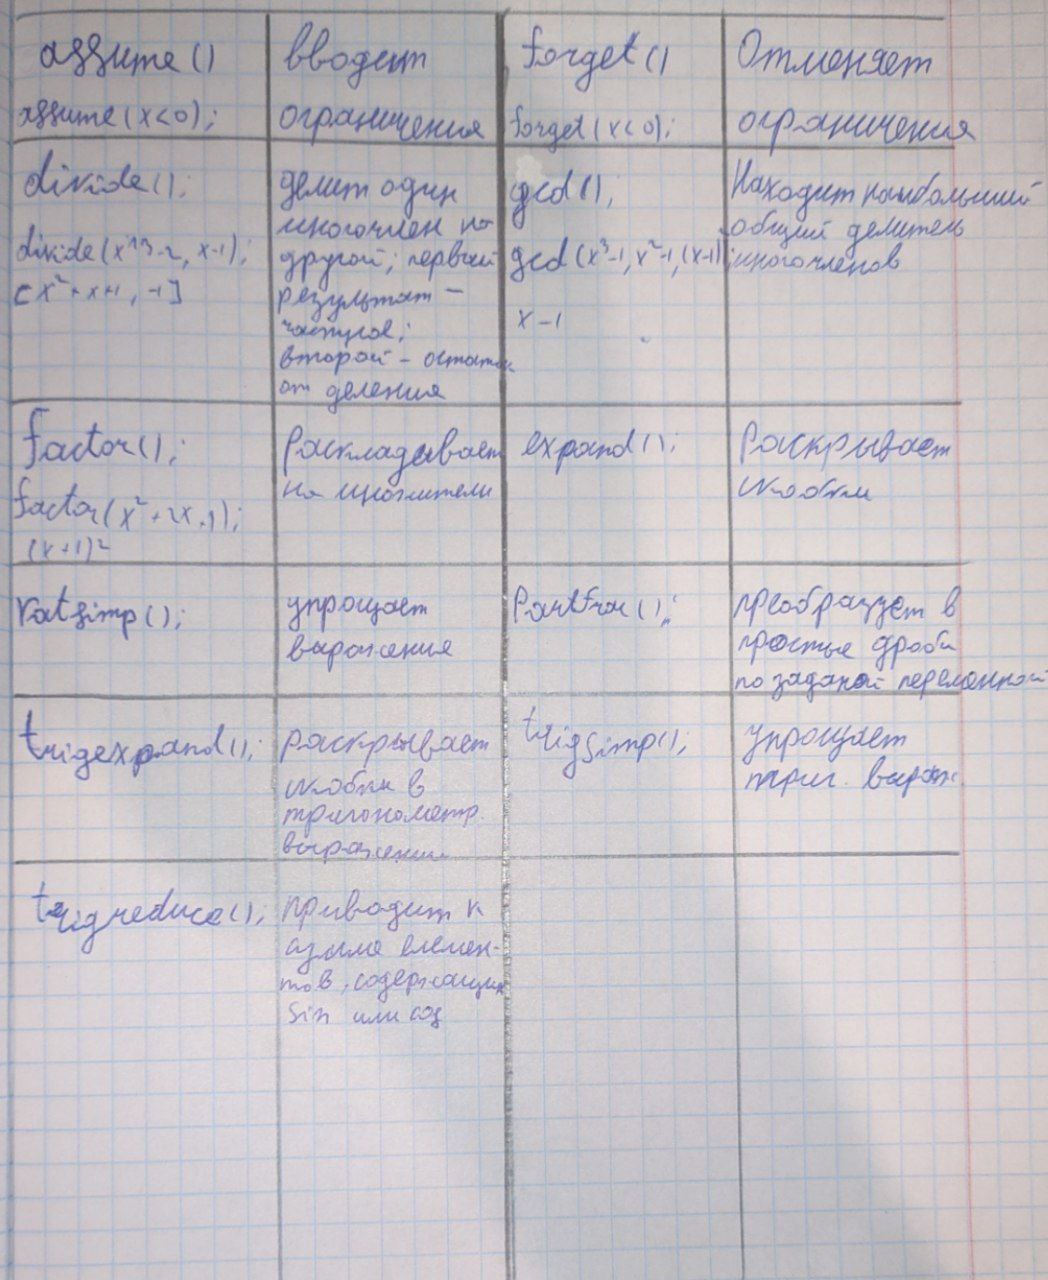 assume()
assume(x<0);
вводит
ограничения
forget()
forget(x<0);
Отменяет
ограничения
divide();
divide(x^3-2, x-1);
[x²+x+1, -1]
делит один
многочлен на
другой; первый
результат -
частное;
второй - остаток
от деления
gcd();
gcd(x³-1, x²-1, (x-1);
x-1
Находит наибольший
общий делитель
многочленов
factor();
factor(x²+2x+1);
(x+1)²
Раскладывает
на множители
expand();
Раскрывает
скобки
ratsimp();
упрощает
выражения
Partfrac();
преобразует в
простые дроби
по заданой переменной
trigexpand();
раскрывает
скобки в
тригонометр.
выражении
trigsimp();
упрощает
триг. выраж.
trigreduce();
приводит к
сумме елемен-
тов, содержащих
sin или cos